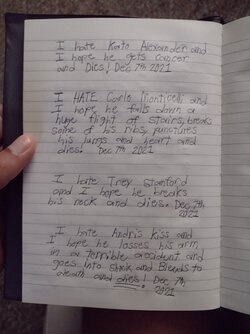 I hate Kato Alexander and
I hope he gets cancer
and Dies! Dec 7th 2021
I HATE Carlo Monticelli and
I hope he falls down a
huge flight of stairs, breaks
some of his ribs, punctures
his lungs and heart and
dies. Dec 7th 2021
I hate Trey Stanford
and I hope he breaks
his neck and dies. Dec 7th
2021
I hate Andris Kiss and
I hope he losses his arm
in a terrible accident and
goes into shock and Bleeds to
death and dies! Dec 7th
2021